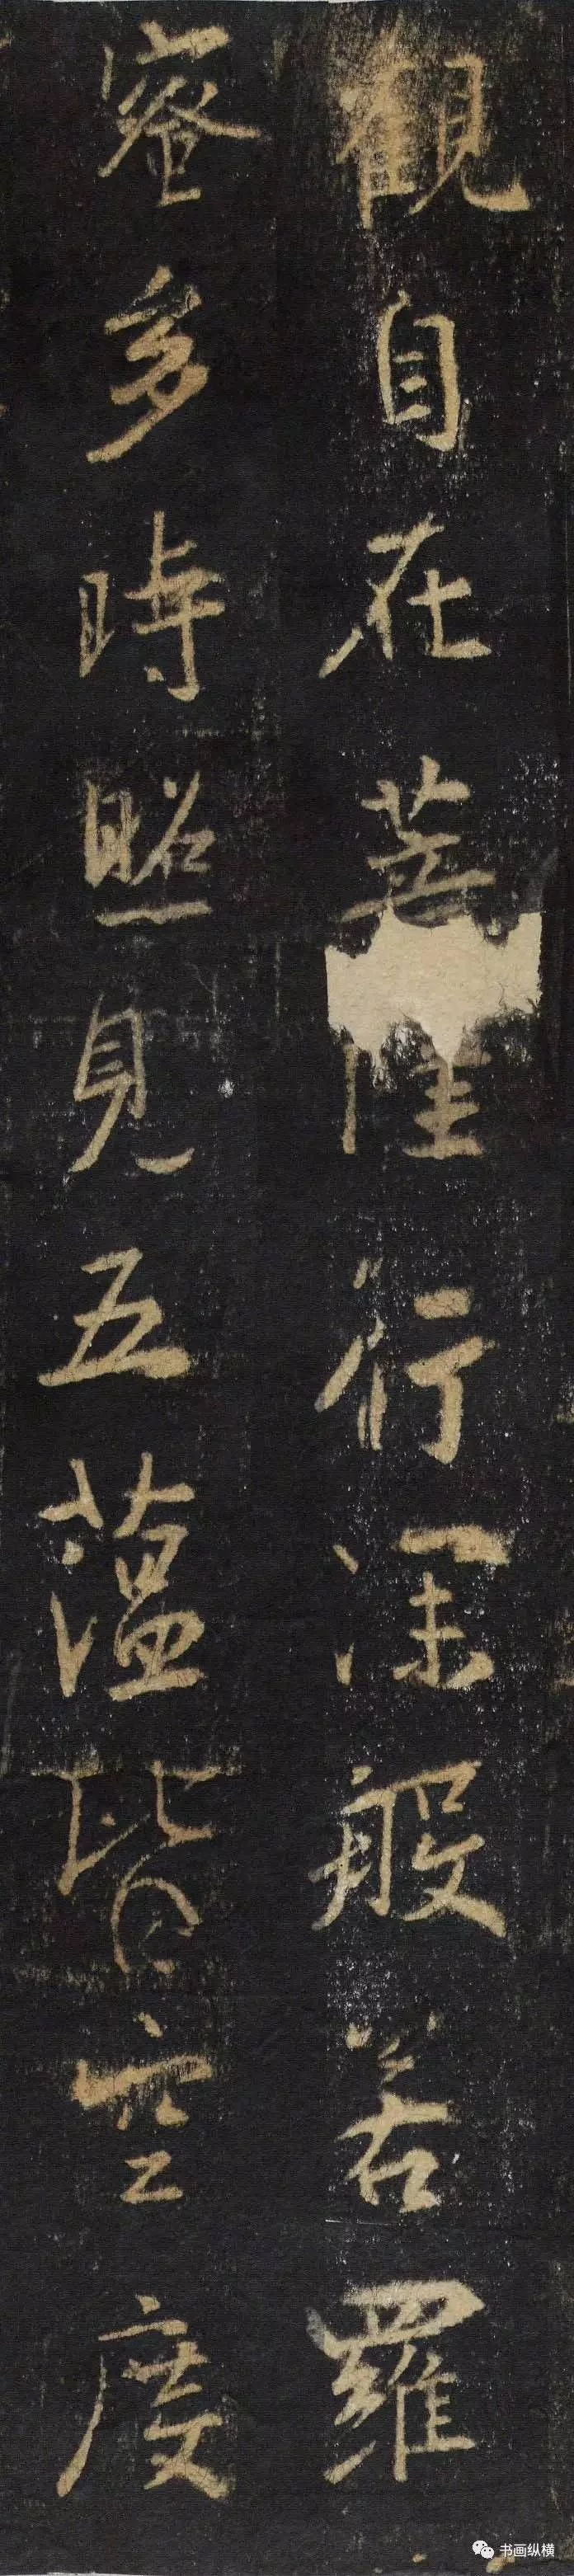 觀自在菩薩行深般若羅
蜜多時照見五蘊皆空度
书画纵横